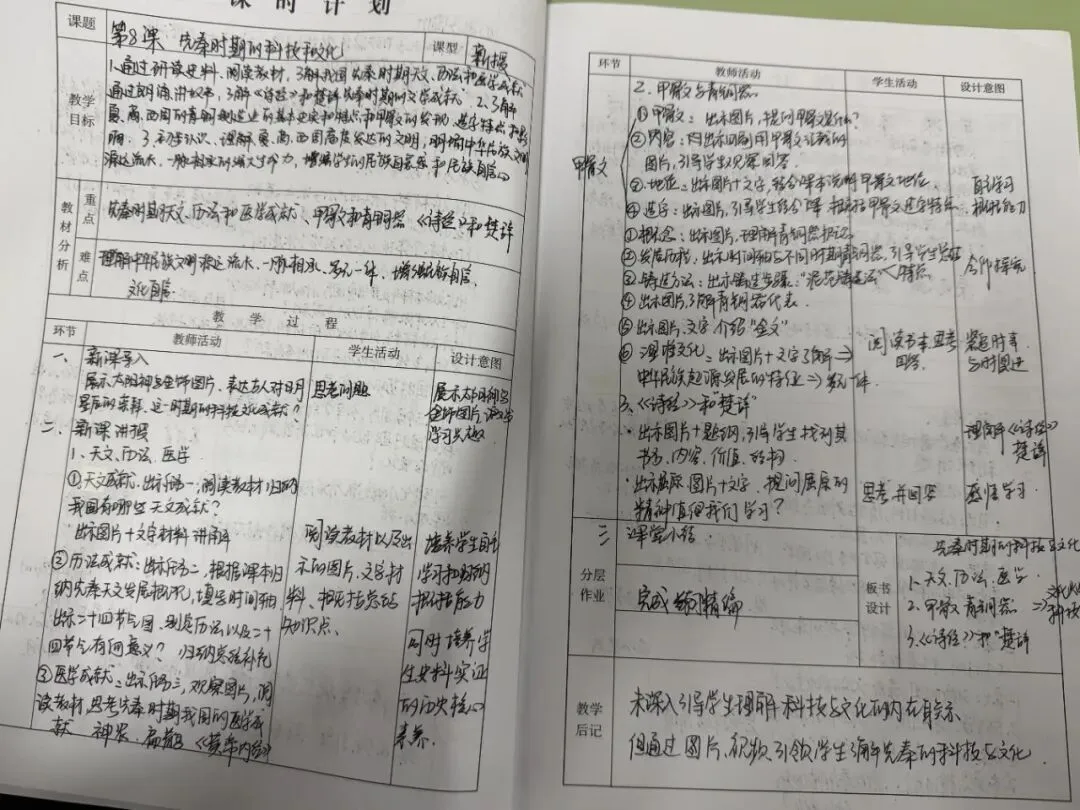 课时计划
课题 第8课 先秦时期的科技和文化 课型 新授
教学目标
1.通过研读史料、阅读教材，了解我国先秦时期天文、历法和医学成就
通过朗诵、讲故事，了解《诗经》和楚辞先秦时期的文学成就 2、了解
夏、商、西周的青铜制造业的基本史实和特点和甲骨文的发现、造字特点和影
响。3.初步认识、理解夏、商、西周高度发达的文明，明确中华民族文明
源远流长、一脉相承的强大生命力，增强学生的民族自豪感和民族自信心
教材分析
重点 先秦时期天文、历法和医学成就、甲骨文和青铜器《诗经》和楚辞
难点 理解中华民族文明源远流长、一脉相承、多元一体，增强民族自信、
文化自信.
教学过程
环节 教师活动 学生活动 设计意图
一、新课导入
展示太阳神鸟金饰图片，表达古人对日月
星辰的崇拜，这一时期的科技文化成就？
思考问题
展示太阳神鸟
金饰图片，
学习兴趣
二、新课讲授
1、天文、历法、医学
①天文成就：出示任务一，阅读教材归纳
我国有哪些天文成就？
出示图片+文字材料 讲解
②历法成就：出示任务二，根据课本归
纳先秦天文发展概况，填写时间轴
出示二十四节气图，
四节气有何意义？归纳完整补充
③医学成就：出示任务三，观察图片，阅
读教材，思考先秦时期我国的医学成
就 神农、扁鹊《黄帝内经》
阅读教材以及出
示的图片、文字材
料、概括总结
知识点、
培养学生自主
学习和归纳
概括能力
同时培养学
生史料实证
的历史核心
素养.
环节 教师活动 学生活动 设计意图
2.甲骨文与青铜器.
甲骨文
①甲骨文：出示图片，提问甲骨文是什么？
②内容：
图片，引导学生观察回答.
③地位：出示图片+文字，结合课本说明甲骨文地位
④造字：出示图片，引导学生结合课本概括甲骨文造字特点
自主学习
概括能力
①概念：出示图片，理解青铜器概念
②发展历程：出示时间轴与不同时期青铜器，引导学生总结
特点
③铸造方法：出示铸造步骤."泥范铸造法"
④出示图片，了解青铜器代表.
⑤出示图片、文字介绍"金文"
⑥：出示图片+文字了解⇒
中华民族起源发展的特征⇒多元一体
合作探究
阅读书本思考
回答.
紧追时事
与时俱进
3、《诗经》和"楚辞"
·出示图片+题纲，引导学生找到其
书名、内容、价值、结构.
·出示屈原图片+文字，提问屈原的
精神值得我们学习？
思考并回答
理解《诗经》
楚辞
感悟学习.
三 课堂小结.
分层作业 完成《》精编
板书设计
先秦时期的科技与文化
1.天文、历法、医学
2.甲骨文 青铜器 ⇒
3.《诗经》和"楚辞
教学后记
未深入引导学生理解科技与文化的内在联系
但通过图片、视频引领学生了解先秦的科技与文化